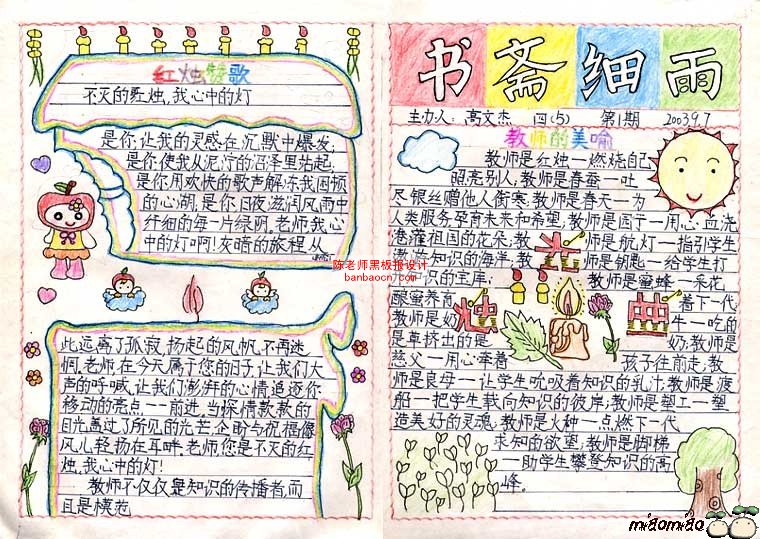 红烛颂歌
不灭的红烛,我心中的灯
是你,让我的灵感在沉默中爆发;
是你,使我从泥泞的沼泽里站起;
是你,用欢快的歌声解冻我困顿
的心湖,是你,日夜滋润风雨中
纤细的每一片绿阴,老师,我心
中的灯啊!友暗的旅程,从
此远离了孤寂,扬起的风帆,不再迷
惘,老师,在今天属于您的日子,让我们大
声的呼喊,让我们澎湃的心情追逐你
移动的亮点一一前进,当深情款款的
目光,蓋过了所见的光芒,企盼与祝福像
风儿,轻扬在耳畔,老师,您是不灭的红
烛,我心中的灯!
教师不仅仅是知识的传播者,而
且是模范
陈老师黑板报设计
banbaocn.com
书斋细雨
主办人:高文杰 四(5) 第1期 2003.9.7
教师的美喻
教师是红烛一燃烧自己
照亮别人;教师是春蚕一吐
尽银丝赠他人御寒;教师是春天一为
人类服务,孕育未来和希望;教师是园丁一用心血浇
港灌祖国的花朵;教师是航灯一指引学生
知识的海洋;教师是钥匙一给学生打
知识的宝库;教师是蜜蜂一采花
酿蜜养育着下一代
教师是奶牛一吃的
是草挤出的是奶;教师是
慈父一用心牵着孩子往前走;教
师是良母一让学生吮吸着知识的乳汁;教师是渡
船一把学生载向知识的彼岸;教师是塑工一塑
造美好的灵魂;教师是火种一点燃下一代
求知的欲望;教师是脚梯
一助学生攀登知识的高
峰。
miaomiao